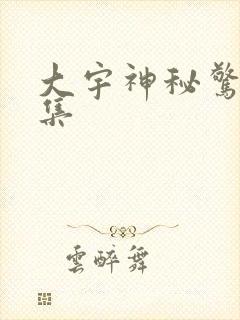 大宇神秘驚
集
雲醉舞